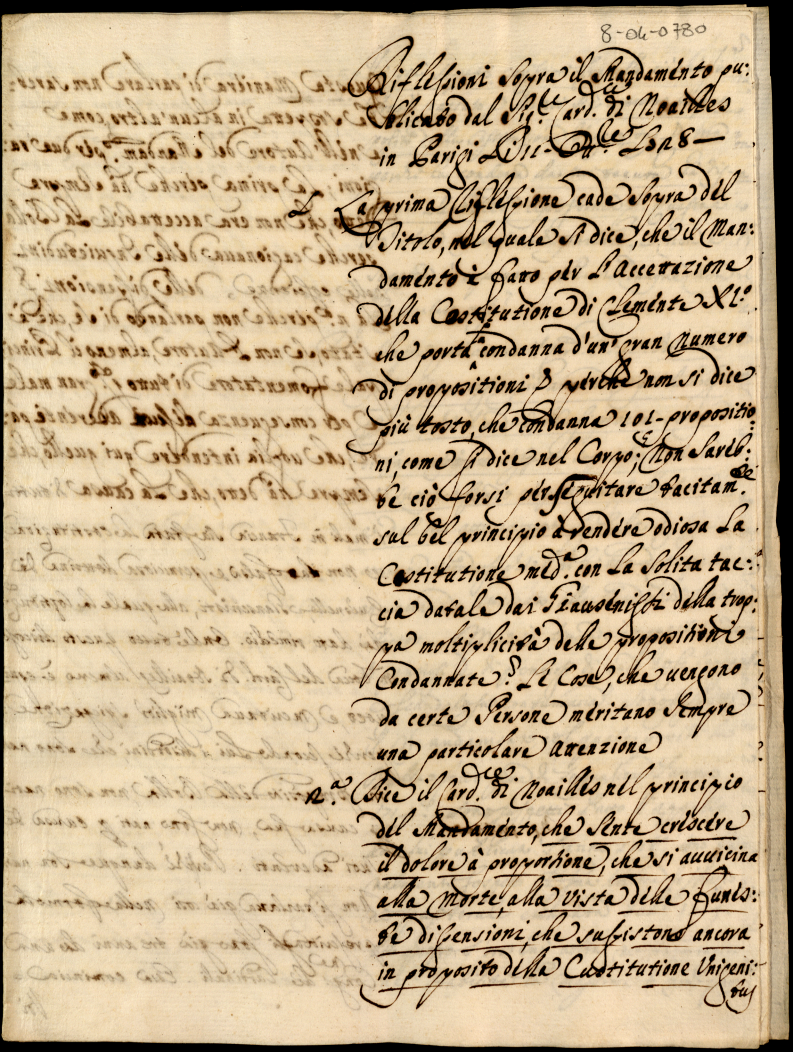 8-04-0780
Riflessioni Sopra il Mandamento pu:
blicato dal Sig.r Card.le di Noailles
in Parigi L'11
La prima Riflessione cade Sopra del
Titolo, nel quale Si dice, che il Man:
damento è fatto pèr L'Accettazione
della Costitutione di Clemènte XI.o
che porta la condanna d'un gran Numero
di propositioni? pèrche non si dice
più tosto, che condanna 101-propositio:
ni, come si dice nel Corpo; è Non Sarèb:
be ciò forsi pèr Seguitare tacitam.te
sul bèl principio à rendère odiosa La
Costitutione med.a con La Solita tac:
cia datale dai Giansenisti della trop:
pa moltiplicità delle propositioni
Condannate? Le Cose, che uengono
da certe Persone mèritano Sèmpre
una particolare Attenzione
2.a Dice il Card.le di Noaillès nèl principio
dèl Mandamènto, che Sènte crèscère
il dolore à proportione, che si auuicina
alla Morte, alla Vista dèlle funès:
te dissensioni, che sussistono ancora
in proposito della Custitutione Unigèni:
tus